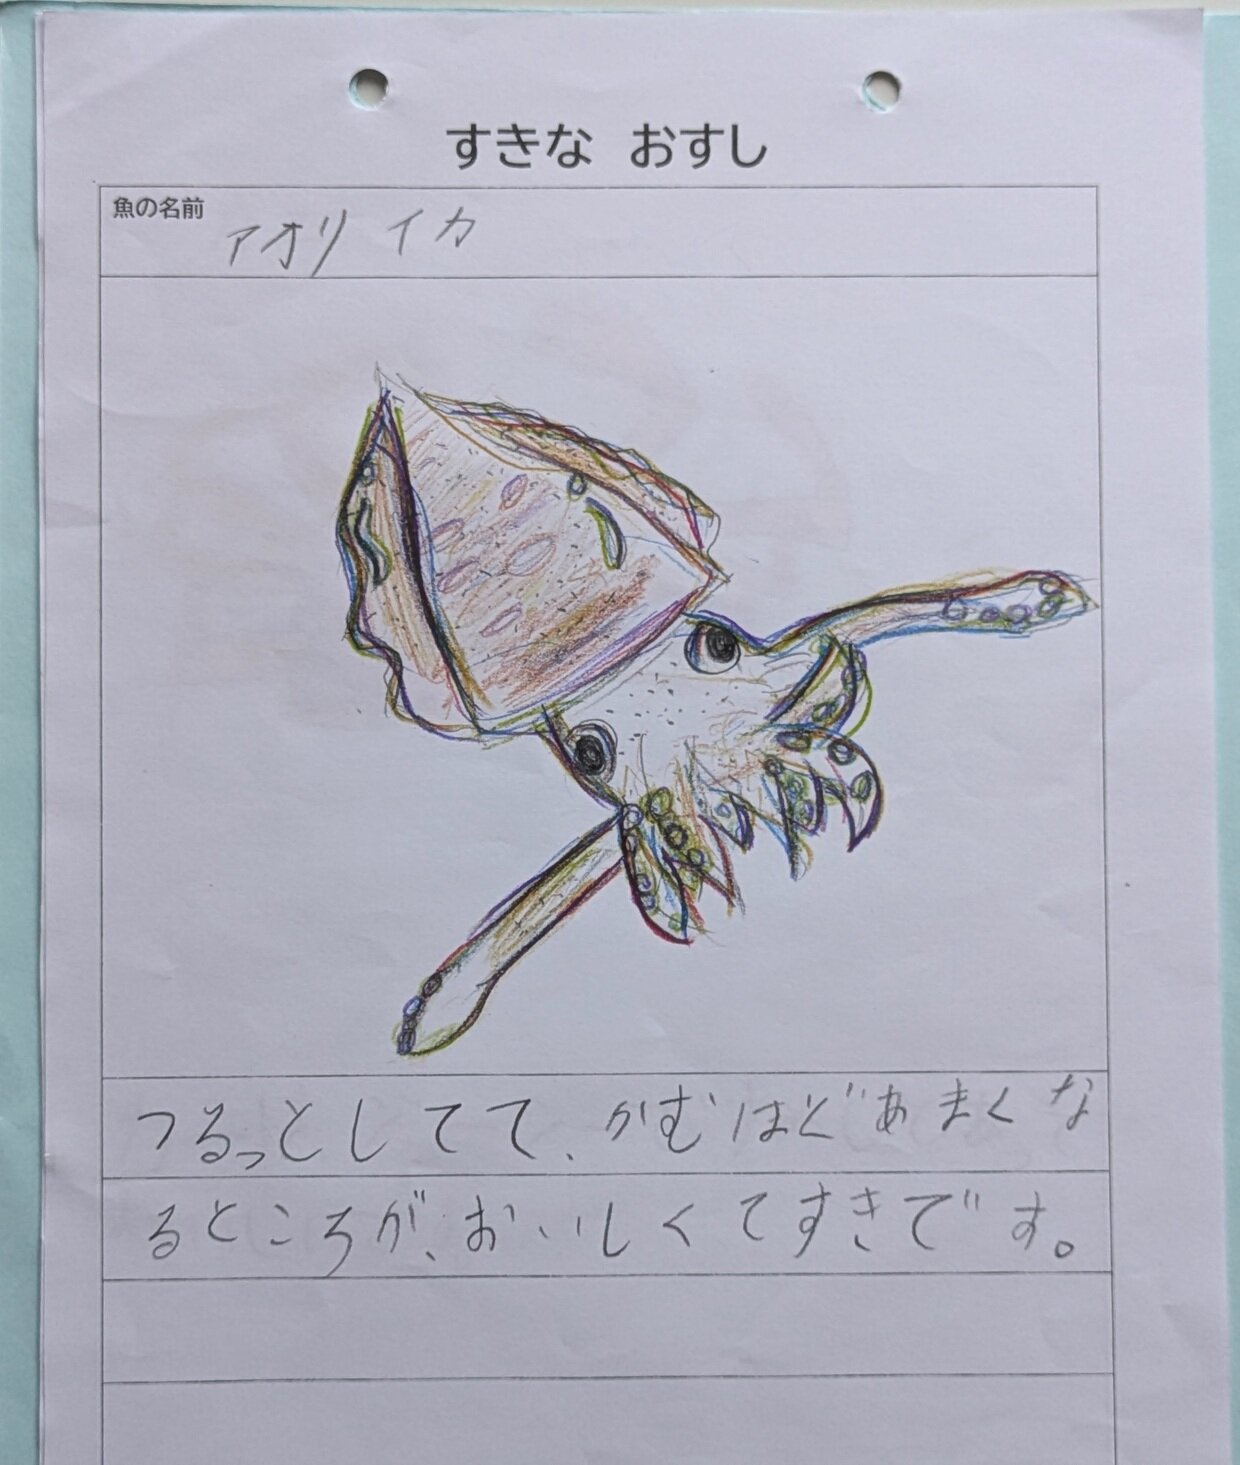 すきな おすし
魚の名前
アオリイカ
つるっとしてて、かむほどあまくな
るところが、おいしくてすきです。